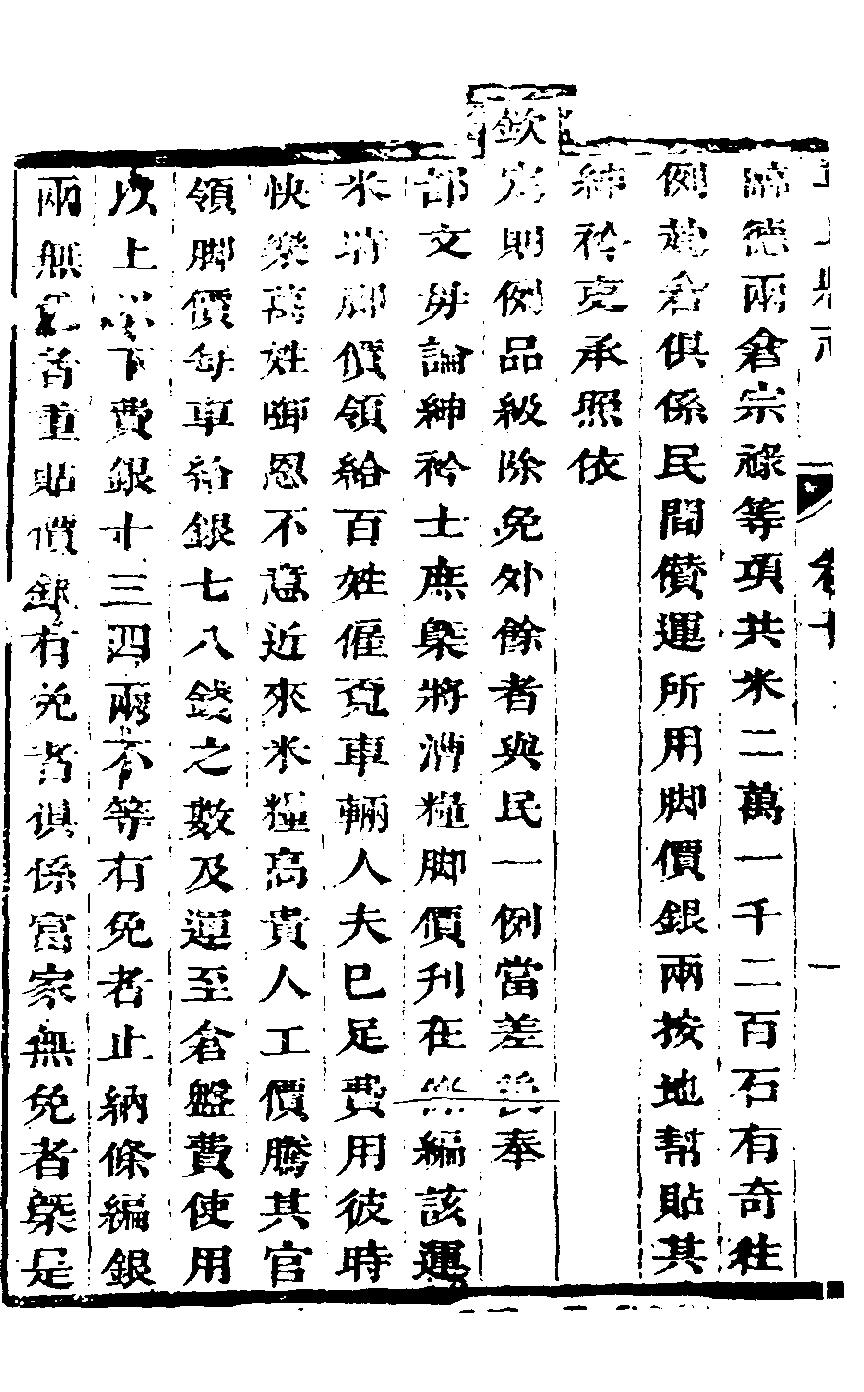 歸德兩倉宗祿等項共米二萬一千二百石有奇往
例兌倉俱係民間儧運所用脚價銀兩按地幫貼其
紳衿克承照依
欽定則例品級除免外餘者與民一例當差後奉
部文毋論紳衿士庶槩將漕糧脚價刋在條編該運
米撥脚價領給百姓僱覓車輛人夫已足費用彼時
快樂萬姓啣恩不意近來米糧高貴人工價騰其官
領脚價每車給銀七八錢之數及運至倉盤費使用
以上下費銀十三四兩不等有免者止納條編銀
兩無者重貼價銀有免者俱係富家無免者槩是